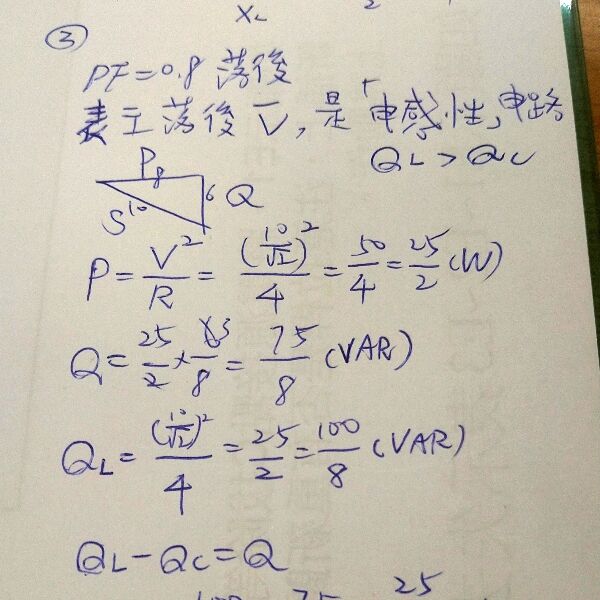 XL 2
③
PF=0.8 落後
表 I̅ 落後 V̅, 是「电感性」电路
QL > QC
P 8
S 10 6 Q
P = V²/R = (10/√2)²/4 = 50/4 = 25/2 (W)
Q = 25/2 × 63/8 = 75/8 (VAR)
QL = (10/√2)²/4 = 25/2 = 100/8 (VAR)
QL - QC = Q
25